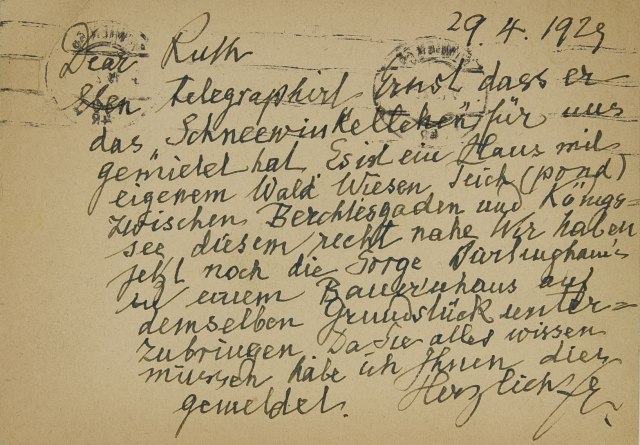 29. 4. 1929
Dear Ruth
Eben telegraphirt Ernst dass er
das „Schneewinkellehen“ für uns
gemietet hat. Es ist ein Haus mit
eigenem Wald Wiesen Teich (pond)
zwischen Berchtesgaden und Königs=
see, diesem recht nahe Wir haben
jetzt noch die Sorge Burlinghams
in einem Bauernhaus auf
demselben Grundstück unter=
zubringen. Da Sie alles wissen
müssen habe ich Ihnen dies
gemeldet. Herzlich